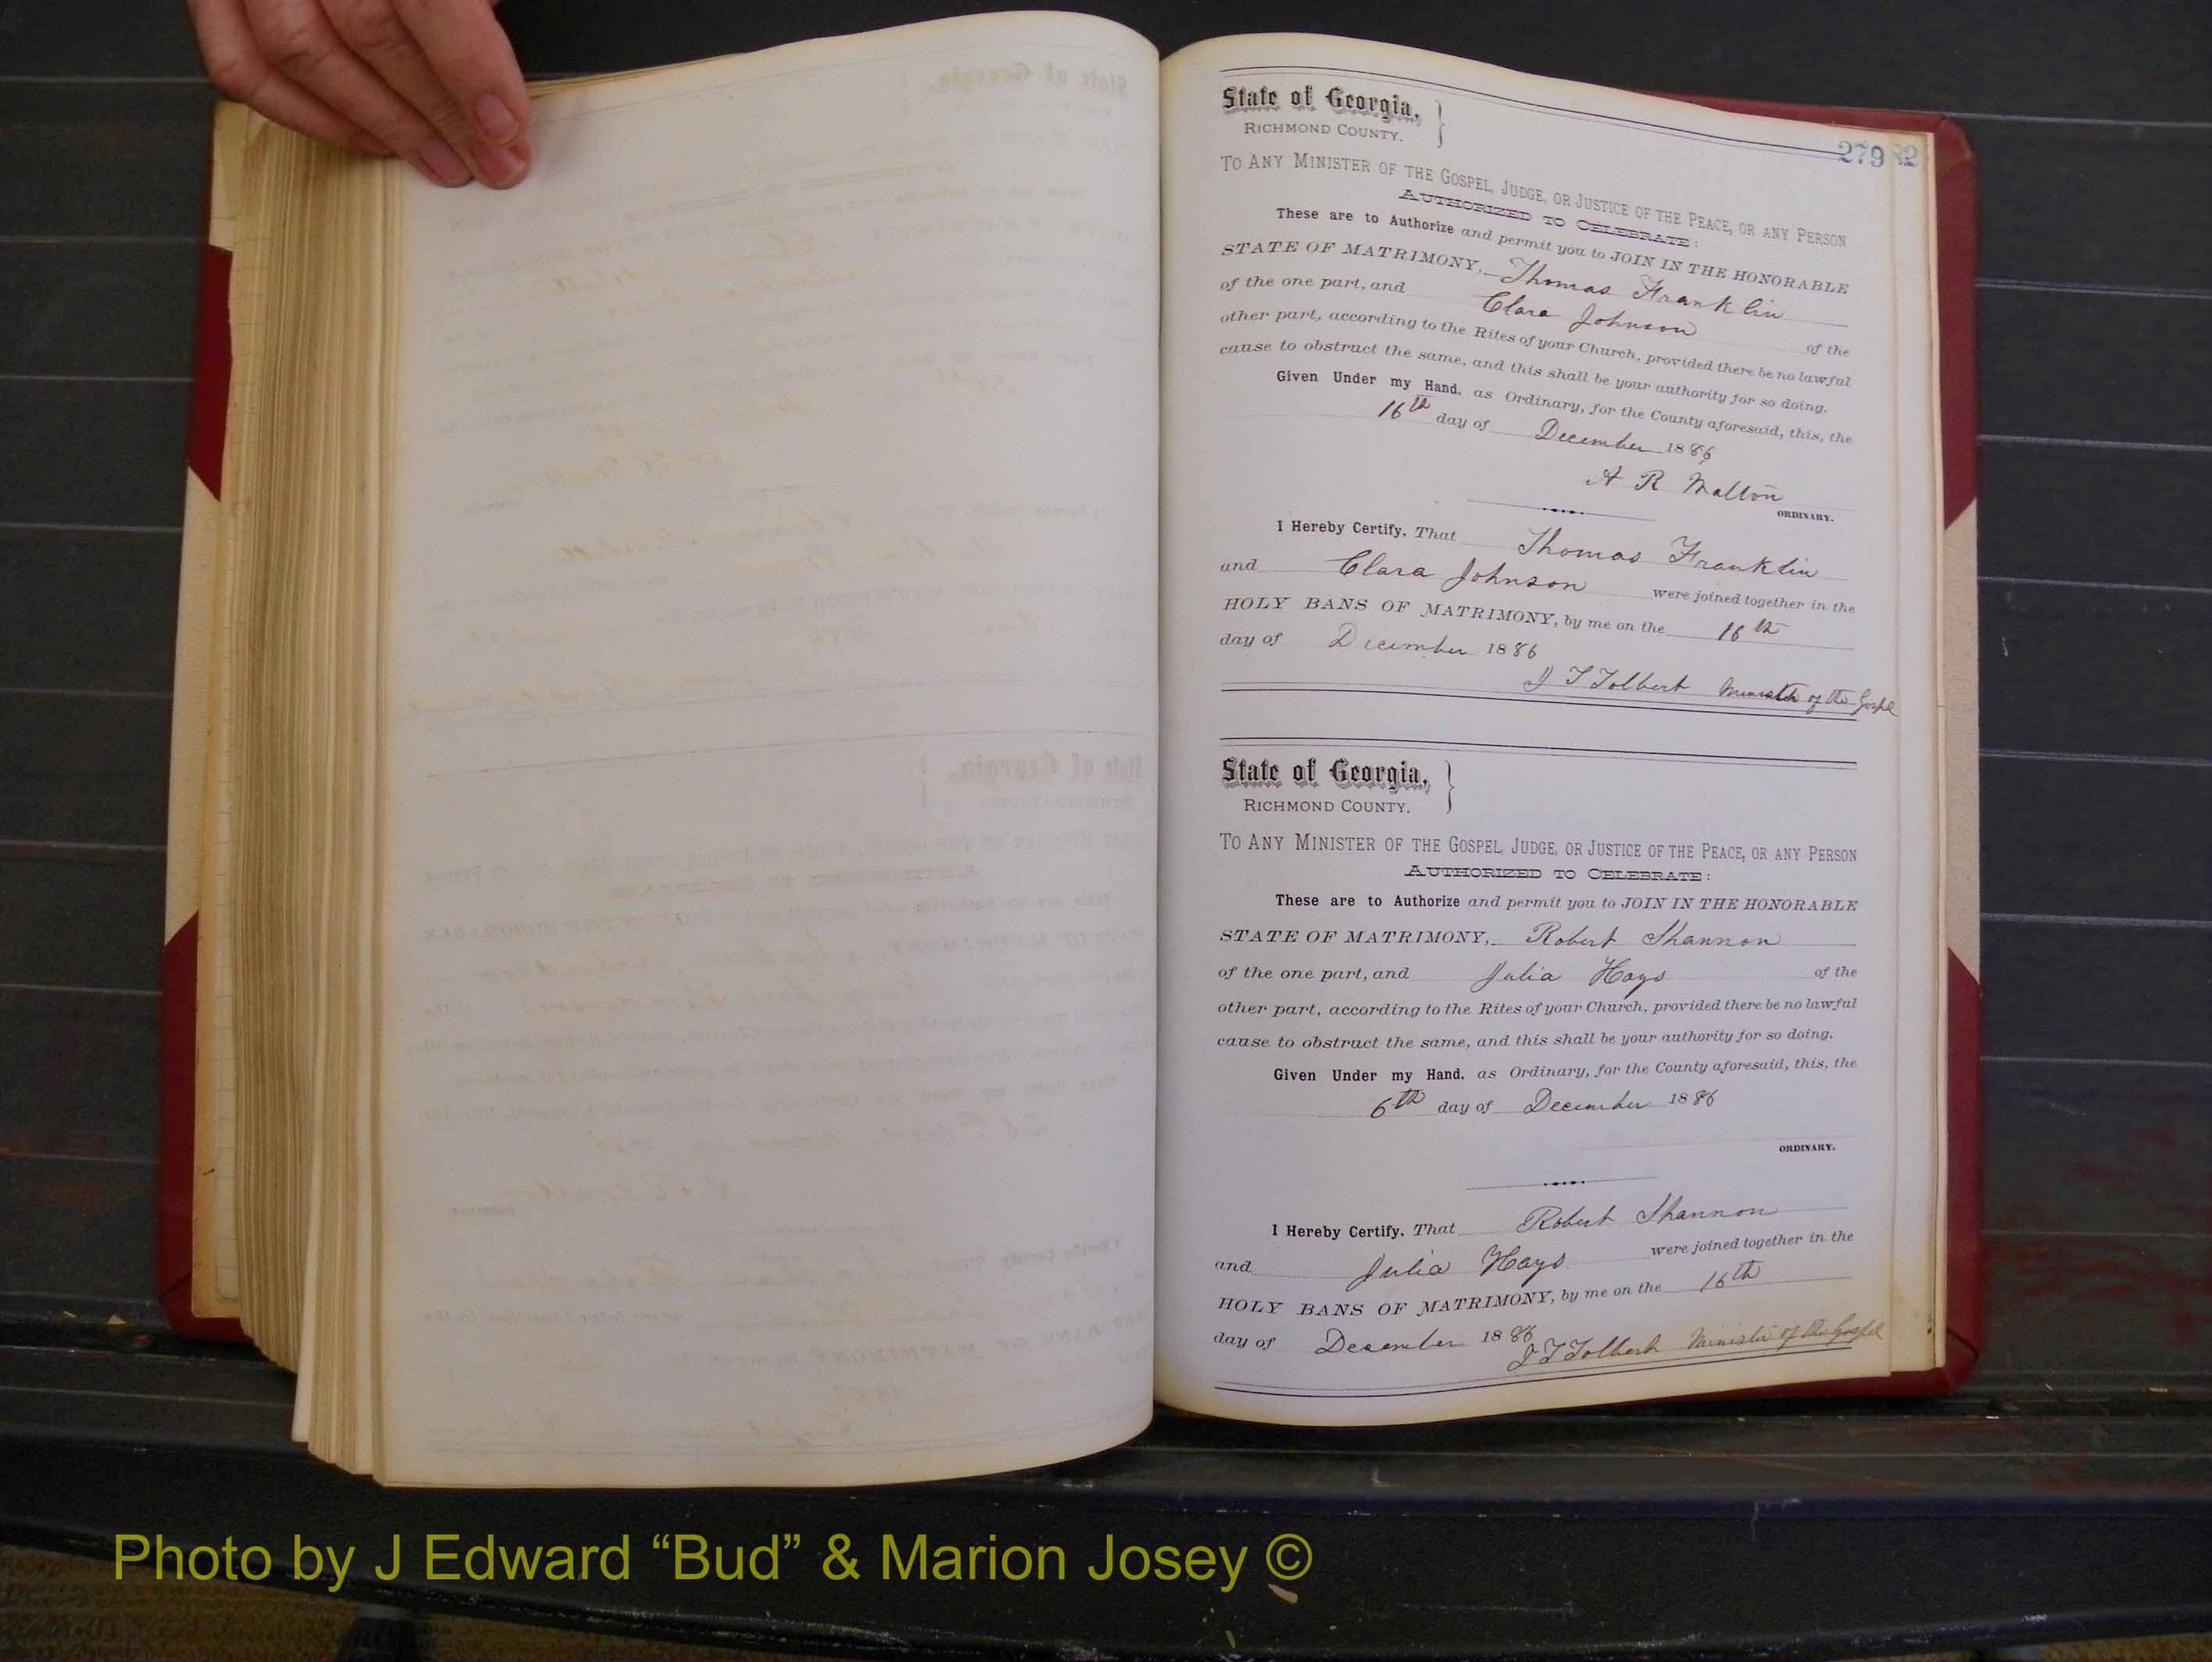 State of Georgia, }
RICHMOND COUNTY.
279 82
TO ANY MINISTER OF THE GOSPEL, JUDGE, OR JUSTICE OF THE PEACE, OR ANY PERSON
AUTHORIZED TO CELEBRATE:
These are to Authorize and permit you to JOIN IN THE HONORABLE
STATE OF MATRIMONY, Thomas Franklin
of the one part, and Clara Johnson of the
other part, according to the Rites of your Church, provided there be no lawful
cause to obstruct the same, and this shall be your authority for so doing.
Given Under my Hand, as Ordinary, for the County aforesaid, this, the
16th day of December 1886
A R Walton
ORDINARY.
I Hereby Certify, That Thomas Franklin
and Clara Johnson were joined together in the
HOLY BANS OF MATRIMONY, by me on the 16th
day of December 1886
J T Tolbert Minister of the Gospel
State of Georgia, }
RICHMOND COUNTY.
TO ANY MINISTER OF THE GOSPEL, JUDGE, OR JUSTICE OF THE PEACE, OR ANY PERSON
AUTHORIZED TO CELEBRATE:
These are to Authorize and permit you to JOIN IN THE HONORABLE
STATE OF MATRIMONY, Robert Shannon
of the one part, and Julia Hays of the
other part, according to the Rites of your Church, provided there be no lawful
cause to obstruct the same, and this shall be your authority for so doing.
Given Under my Hand, as Ordinary, for the County aforesaid, this, the
6th day of December 1886
ORDINARY.
I Hereby Certify, That Robert Shannon
and Julia Hays were joined together in the
HOLY BANS OF MATRIMONY, by me on the 16th
day of December 1886
J T Tolbert Minister of the Gospel
Photo by J Edward “Bud” & Marion Josey ©